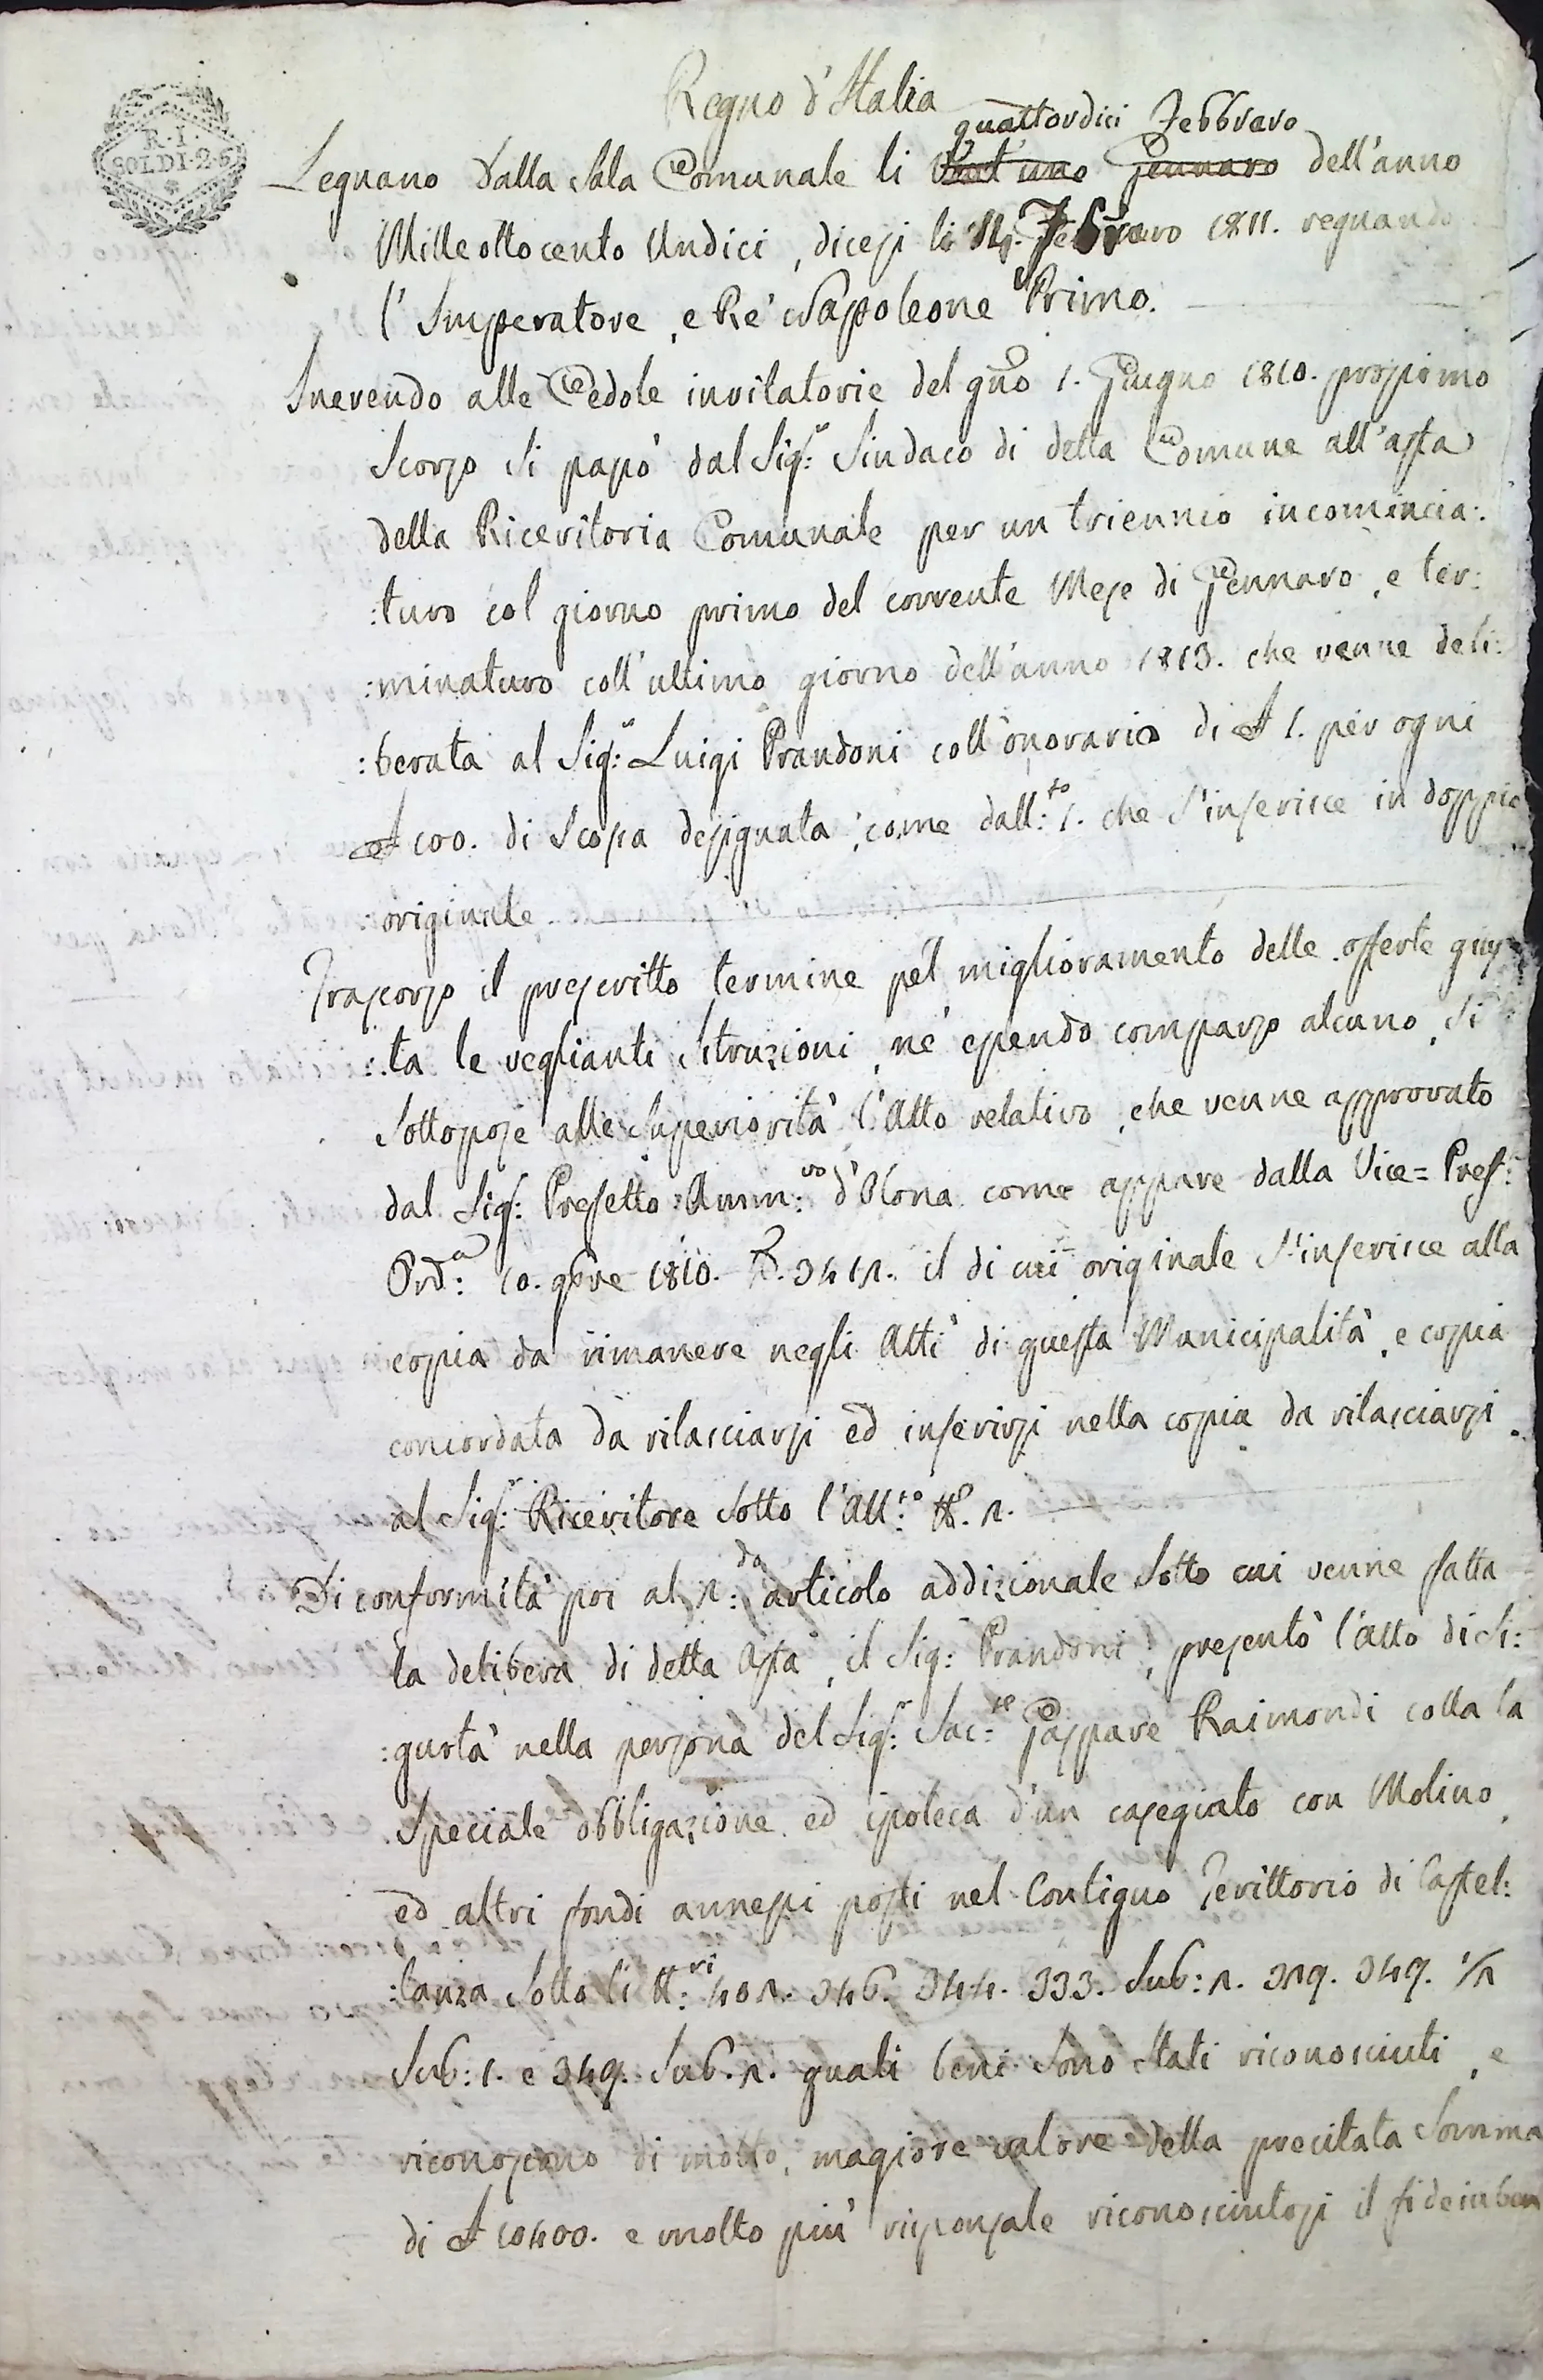 Regno d'Italia
R. I.
SOLDI. 2. 6
quattordici Febbraro
Legnano dalla Sala Comunale li Vent'uno Gennaro dell'anno
Milleottocento Undici, dicesi li 14. Febraro 1811. regnando
l'Imperatore, e Re' Napoleone Primo.
Inerendo alle Cedole invitatorie del gño 1. Giugno 1810. prossimo
Scorso Si passò dal Sig.r Sindaco di detta Comune all'asta
della Riceritoria Comunale per un triennio incomincia:
:turo col giorno primo del corrente Mese di Gennaro, e ter:
:minaturo coll'ultimo giorno dell'anno 1813. che venne deli:
:berata al Sig.r Luigi Prandoni coll'onorario di £ 1. per ogni
£ 100. di Scossa designata, come dall:to 1. che S'inserisce in doppio
:originale
Trascorso il prescritto termine pel miglioramento delle offerte gius
:ta le veglianti Istruzioni, ne' essendo comparso alcuno, Si
Sottopose alle Superiorità l'Atto relativo, che venne approvato
dal Sig.r Prefetto Amm:vo d'Olona come appare dalla Vice= Pref:
Ord:a 10. 9bre 1810. N. 3412. il di cui originale S'inserisce alla
copia da rimanere negli Atti di questa Municipalità, e copia
concordata da rilasciarsi ed inserirsi nella copia da rilasciarsi
al Sig.r Riceritore Sotto l'All:to N. 2.
Di conformità poi al 2:do articolo addizionale Sotto cui venne fatta
la delibera di detta Asta, il Sig.r Prandoni, presentò l'atto di Si:
:gurtà nella persona del Sig.r Sac:te Gaspare Raimondi colla la
Speciale obbligazione ed ipoteca d'un casegiato con Molino,
ed altri fondi annessi posti nel Contiguo Territtorio di Castel:
:lanza Sotto li N:ri 402. 346. 344. 333. Sub: 2. 329. 349. 1/2
Sub: 1. e 349. Sub. 2. quali beni Sono Stati riconosciuti, e
riconoscono di molto, magiore valore della precitata Somma
di £ 10400. e molto più risponsale riconosciutosi il fideiuben